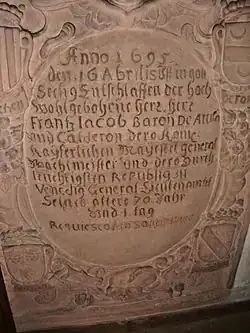 Anno 1695
den 16 Abrilis ist in gott
Seelig Entschlaffen der hoch
Wohlgebohene herr herr
Frantz Iacob Baron De
und Calderon dero Röme.
Kayserlichen Mayestet General
Wachtmeister und dero Durch
leuchtigsten Republig zu
Venedig General Leutenambt
Seines alters 70 Iahr
und 1 tag